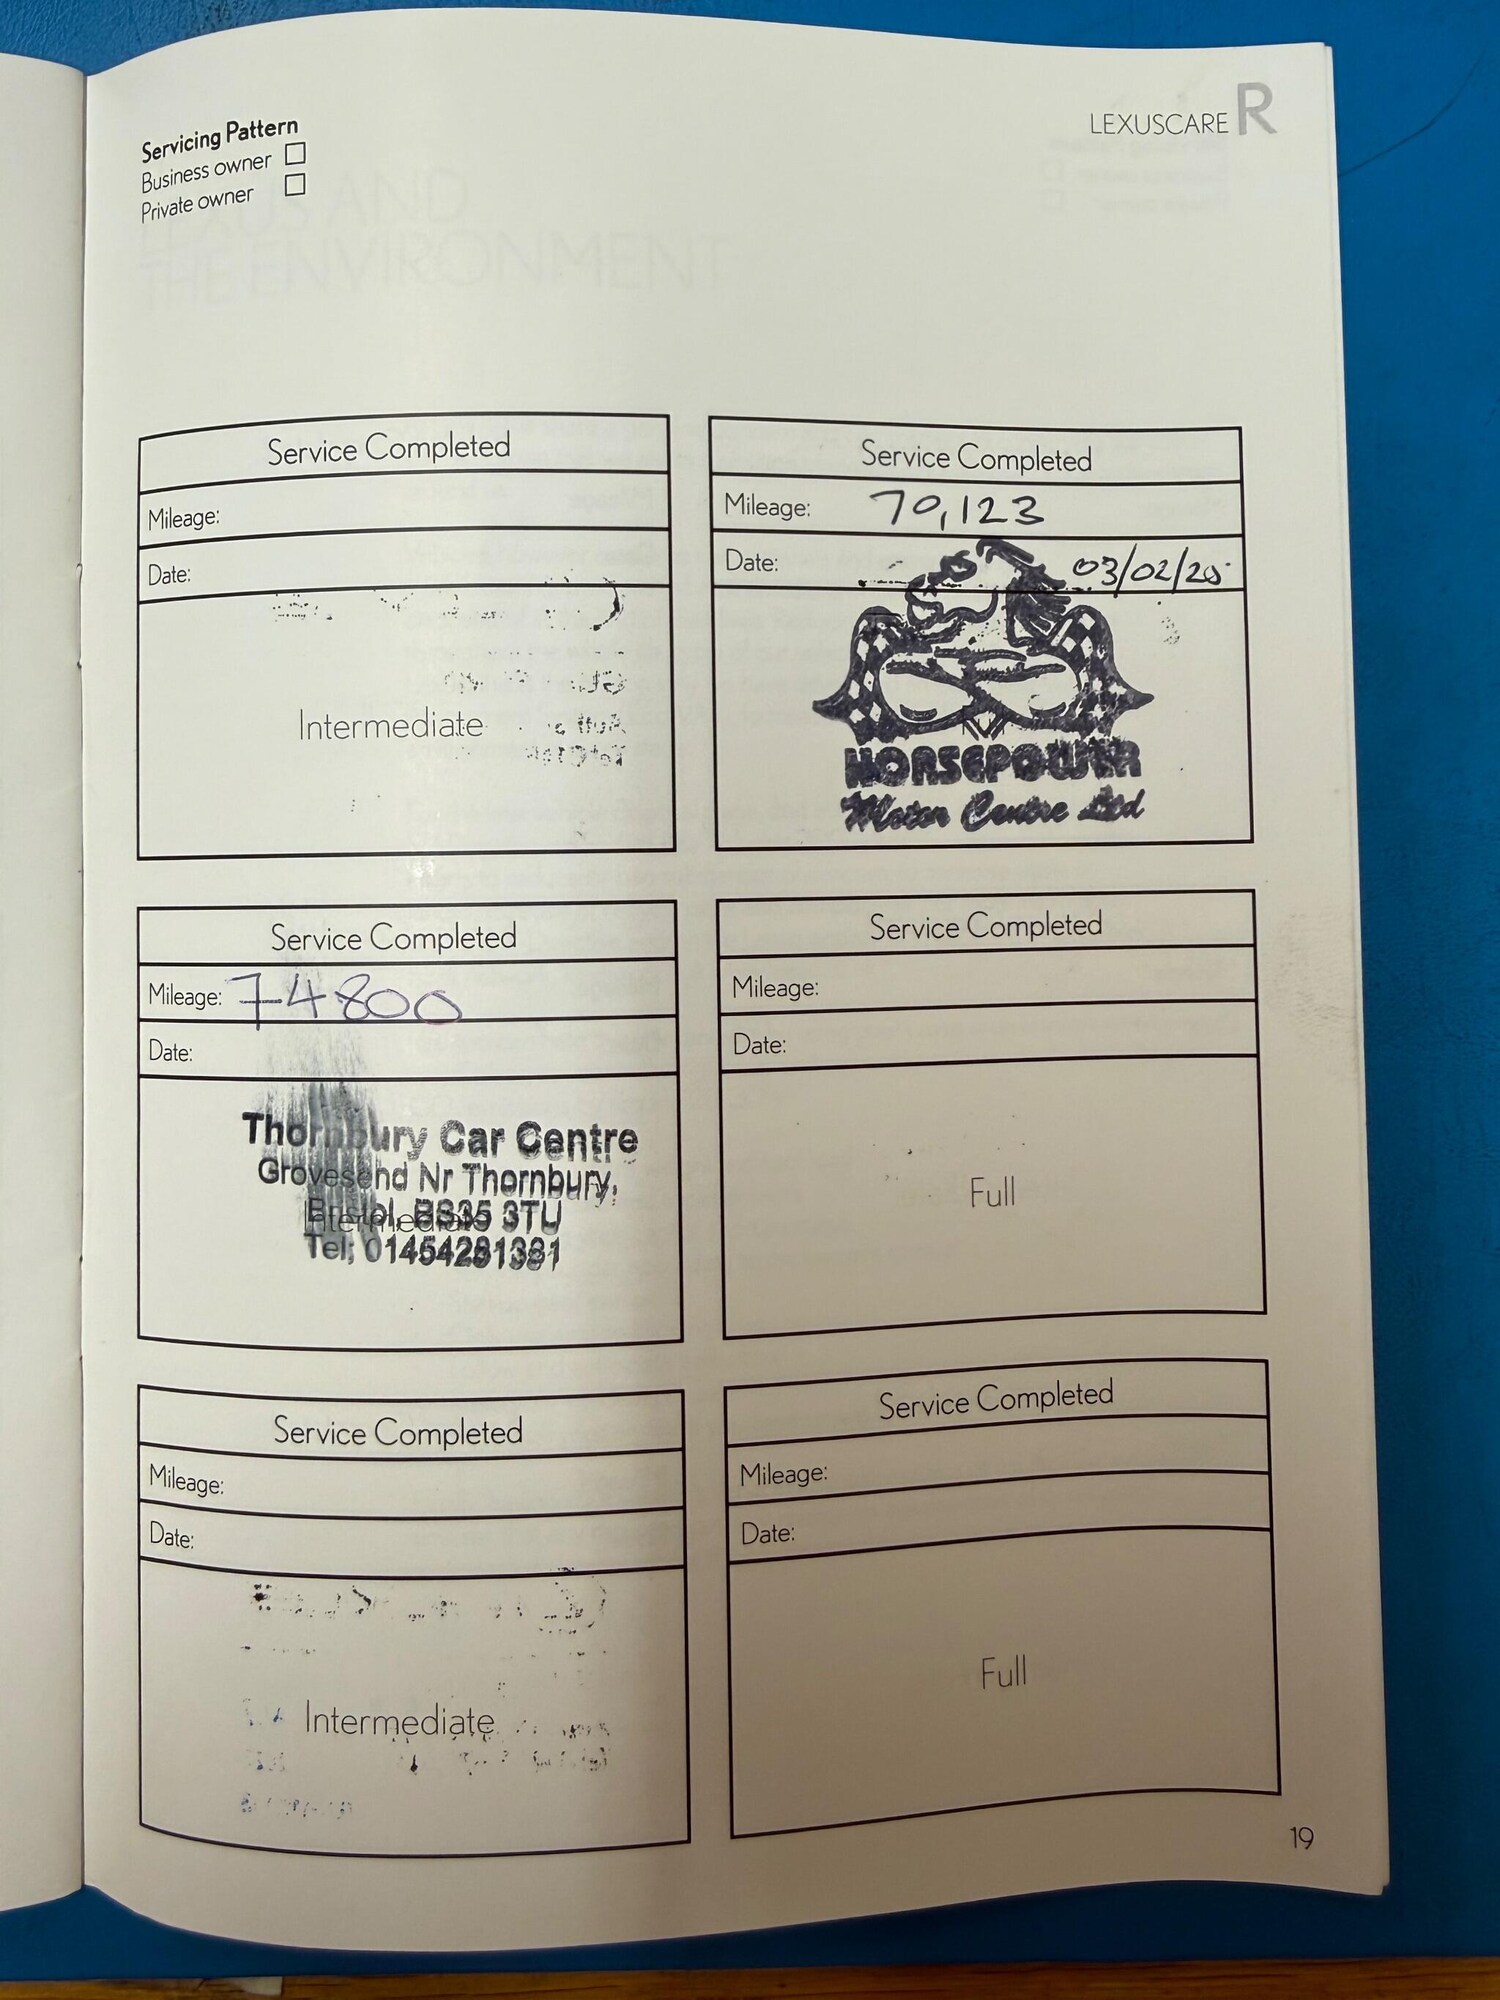 Servicing Pattern
Business owner
Private owner
LEXUSCARE R
Service Completed
Mileage:
Date:
Intermediate
Service Completed
Mileage: 70,123
Date: 03/02/20
HORSEPOWER
Motor Centre Ltd
Service Completed
Mileage: 74800
Date:
Thornbury Car Centre
Grovesend Nr Thornbury,
Bristol, BS35 3TU
Intermediate
Tel; 01454281381
Service Completed
Mileage:
Date:
Full
Service Completed
Mileage:
Date:
Intermediate
Service Completed
Mileage:
Date:
Full
19